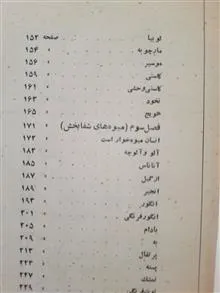 لوبیا صفحه ۱۵۲
مارچوبه » ۱۵۴
موسیر » ۱۵۶
کاسنی » ۱۵۹
کاسنی‌وحشی » ۱۶۱
نخود » ۱۶۳
هویج » ۱۶۵
فصل سوم (میوه‌های شفابخش) » ۱۷۱
انسان میوه‌خوار است » ۱۷۲
آلو و آلوچه » ۱۸۳
آناناس » ۱۸۵
ازگیل » ۱۸۷
انجیر » ۱۸۹
انگور » ۱۹۳
انگور فرنگی » ۲۰۱
بادام » ۲۰۵
به » ۲۰۹
پرتقال » ۲۱۳
پسته » ۲۲۳
تمشک » ۲۲۷
توت‌فرنگی » ۲۲۹